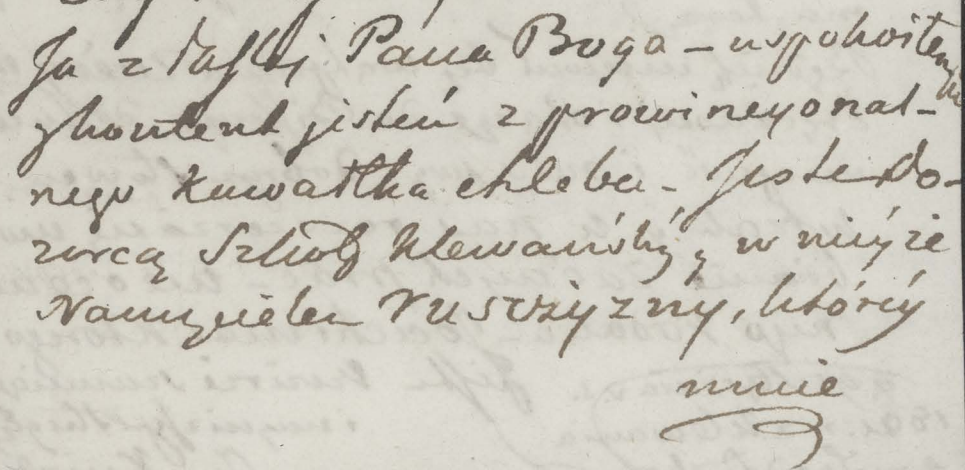 Ja z łaski Pana Boga – uspokoiłem się
y kontent jestem z prowincyonal-
nego kawałka chleba. Jeste Do-
zorcą Szkoły Klewański, w niéy ie
Nauczycielem Ruszczyzny, któréy
mnie